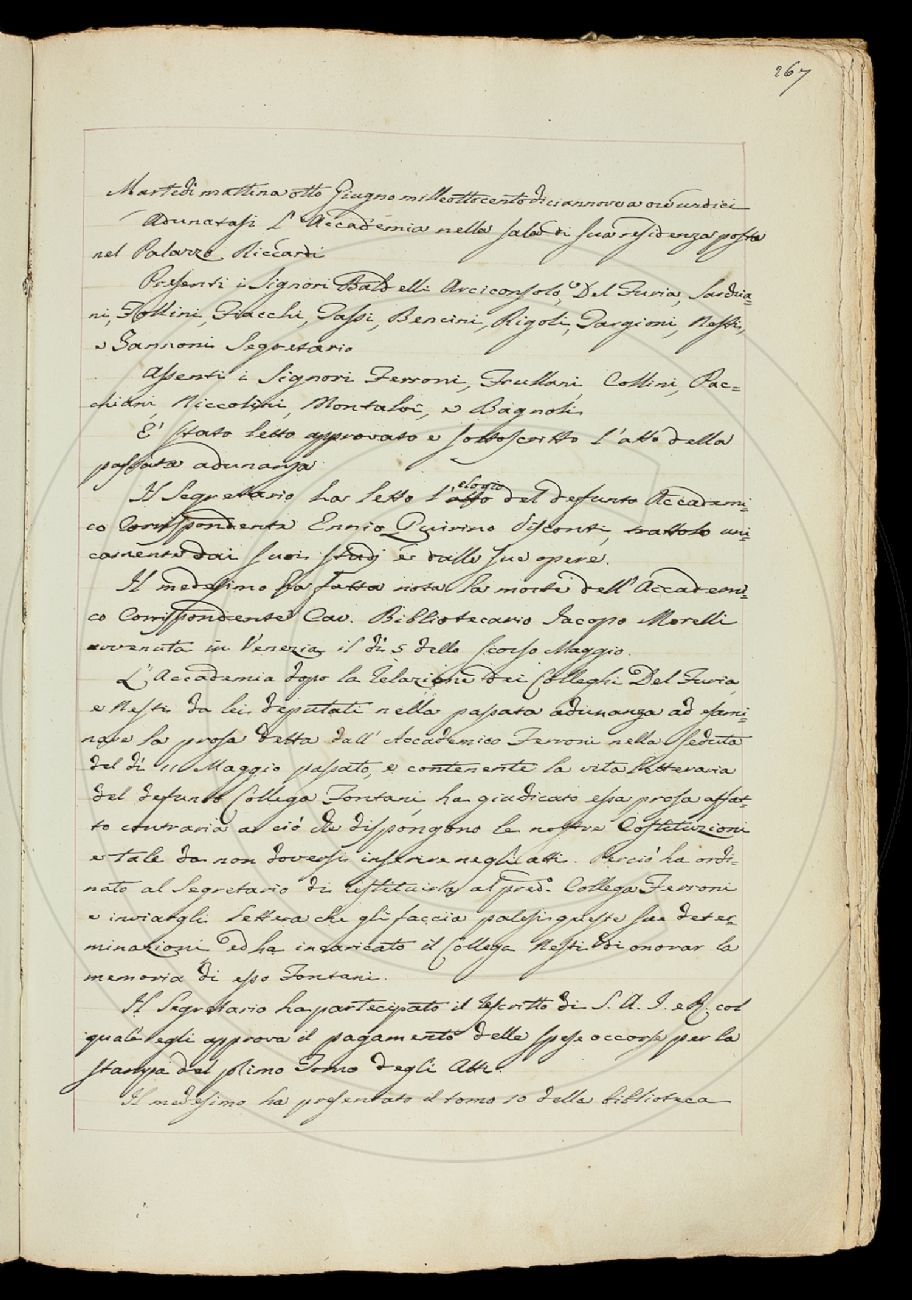 267
Martedì mattina otto Giugno mille ottocento diciannove a ore undici
Adunatasi l'Accademia nella sala di sua residenza posta
nel Palazzo Riccardi
Presenti i Signori Baldelli Arciconsolo, Del Furia, Sarchia=
ni, Follini, Fiacchi, Tassi, Bencini, Rigoli, Targioni, Nesti,
e Zannoni Segretario
Assenti i Signori Ferroni, Frullani, Collini, Pac=
chiani, Niccolini, Montalvi, e Bagnoli.
E' stato letto approvato e sottoscritto l'atto della
passata adunanza
Il Segretario ha letto l'atto elogio del defunto Accademi=
co Corrispondente Ennio Quirino Visconti, trattolo uni=
camente dai suoi studj e dalle sue opere.
Il medesimo ha fatta nota la morte dell'Accademi=
co Corrispondente Cav. Bibliotecario Jacopo Morelli
avvenuta in Venezia il dì 5 dello scorso Maggio.
L'Accademia dopo la relazione dei Colleghi Del Furia,
e Nesti da lei deputati nella passata adunanza ad esami=
nare la prosa detta dall'Accademico Ferroni nella seduta
del dì 11 Maggio passato, e contenente la vita letteraria
del defunto Collega Fontani, ha giudicato essa prosa affat=
to contraria a ciò che dispongono le nostre Costituzioni
e tale da non doversi inserire negli atti. Perciò ha ordi=
nato al Segretario di restituirla al pred.º Collega Ferroni
e inviargli lettera che gli faccia palesi queste sue deter=
minazioni ed ha incaricato il Collega Nesti di onorar la
memoria di esso Fontani.
Il Segretario ha partecipato il rescritto di S. A. I. e R. col
quale egli approva il pagamento delle spese occorse per la
stampa del primo Tomo degli Atti.
Il medesimo ha presentato il tomo 10 della biblioteca